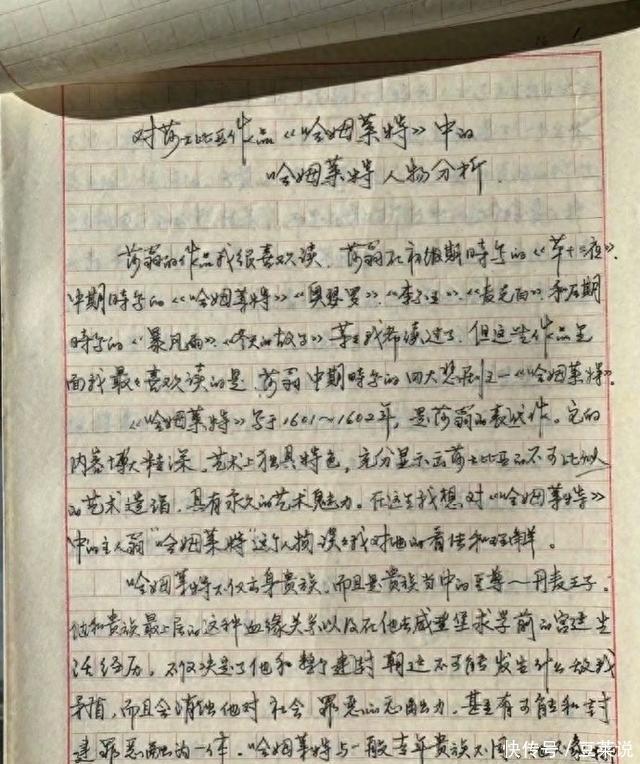 对莎士比亚作品《哈姆莱特》中的
哈姆莱特人物分析.
莎翁的作品我很喜欢读. 莎翁在初级期时写的《第十二夜》.
中期时写的《哈姆莱特》《奥瑟罗》.《李尔王》.《麦克白》. 和后期
时写的《暴风雨》.《冬天的故事》等我都读过了. 但这些作品里
面我最喜欢读的是莎翁中期时写的四大悲剧之一《哈姆莱特》.
《哈姆莱特》写于1601~1602年, 是莎翁的代表作. 它的
内容博大精深. 艺术上独具特色, 充分显示出莎士比亚不可比拟
的艺术造诣. 具有永久的艺术魅力. 在这里我想对《哈姆莱特》
中的主人翁“哈姆莱特”这个人物谈谈我对他的看法和理解。
哈姆莱特不仅出身贵族, 而且是贵族当中的至尊~丹麦王子.
他和贵族最上层的这种血缘关系以及在他去威登堡求学前的宫廷生
活经历, 不仅决定了他和整个封建朝廷不可能发生什么敌我
矛盾, 而且会消蚀他对社会罪恶的免疫力. 甚至有可能和封
建罪恶融为一体. 哈姆莱特与一般青年贵族不同
快传号/豆菜说